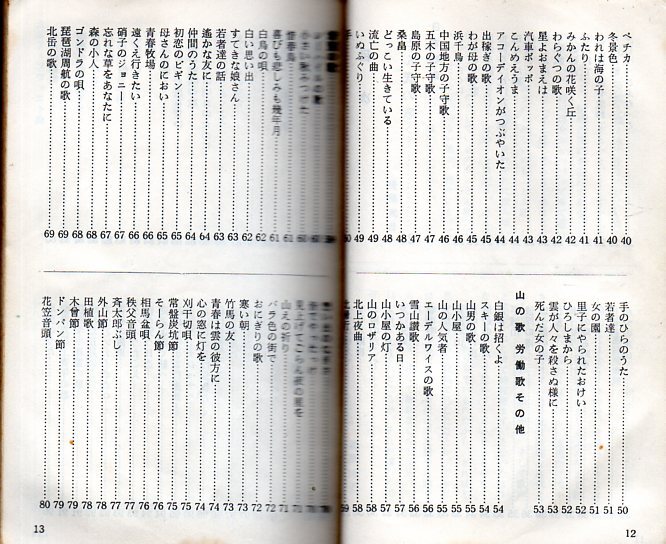 ペチカ……40
冬景色……40
われは海の子……41
ふたり……41
みかんの花咲く丘……42
わらぐつの歌……42
星よおまえは……43
汽車ポッポ……43
こんめえうま……44
アコーディオンがつぶやいた……44
出稼ぎの歌……45
わが母の歌……45
浜千鳥……46
中国地方の子守歌……46
五木の子守歌……47
島原の子守歌……47
桑畠……48
どっこい生きている……48
流亡の曲……49
いぬふぐり……49
手のひらのうた……50
若者達……51
女の園……51
里子にやられたおけい……52
ひろしまから……52
雲が人々を殺さぬ様に……53
死んだ女の子……53
山の歌 労働歌その他
白銀は招くよ……54
スキーの歌……54
山男の歌……55
山小屋……55
山の人気者……55
エーデルワイスの歌……56
雪山讃歌……56
いつかある日……57
山小屋の灯……57
山のロザリア……58
北上夜曲……58
12
惜春鳥……61
喜びも悲しみも幾年月……61
白鳥の唄……62
白い思い出……62
すてきな娘さん……63
若者達の話……63
遥かな友に……64
仲間のうた……64
初恋のビギン……65
母さんのにおい……65
青春牧場……66
遠くえ行きたい……66
硝子のジョニー……67
忘れな草をあなたに……67
森の小人……68
ゴンドラの唄……68
琵琶湖周航の歌……69
北岳の歌……69
見上げてごらん夜の星を……71
山えの祈り……71
バラ色の街で……72
おにぎりの歌……72
寒い朝……73
竹馬の友……73
青春は雲の彼方に……74
心の窓に灯を……74
刈干切唄……75
常盤炭坑節……75
そーらん節……76
相馬盆唄……76
秩父音頭……77
斉太郎ぶし……77
外山節……78
田植歌……78
木曾節……79
ドンパン節……79
花笠音頭……80
13